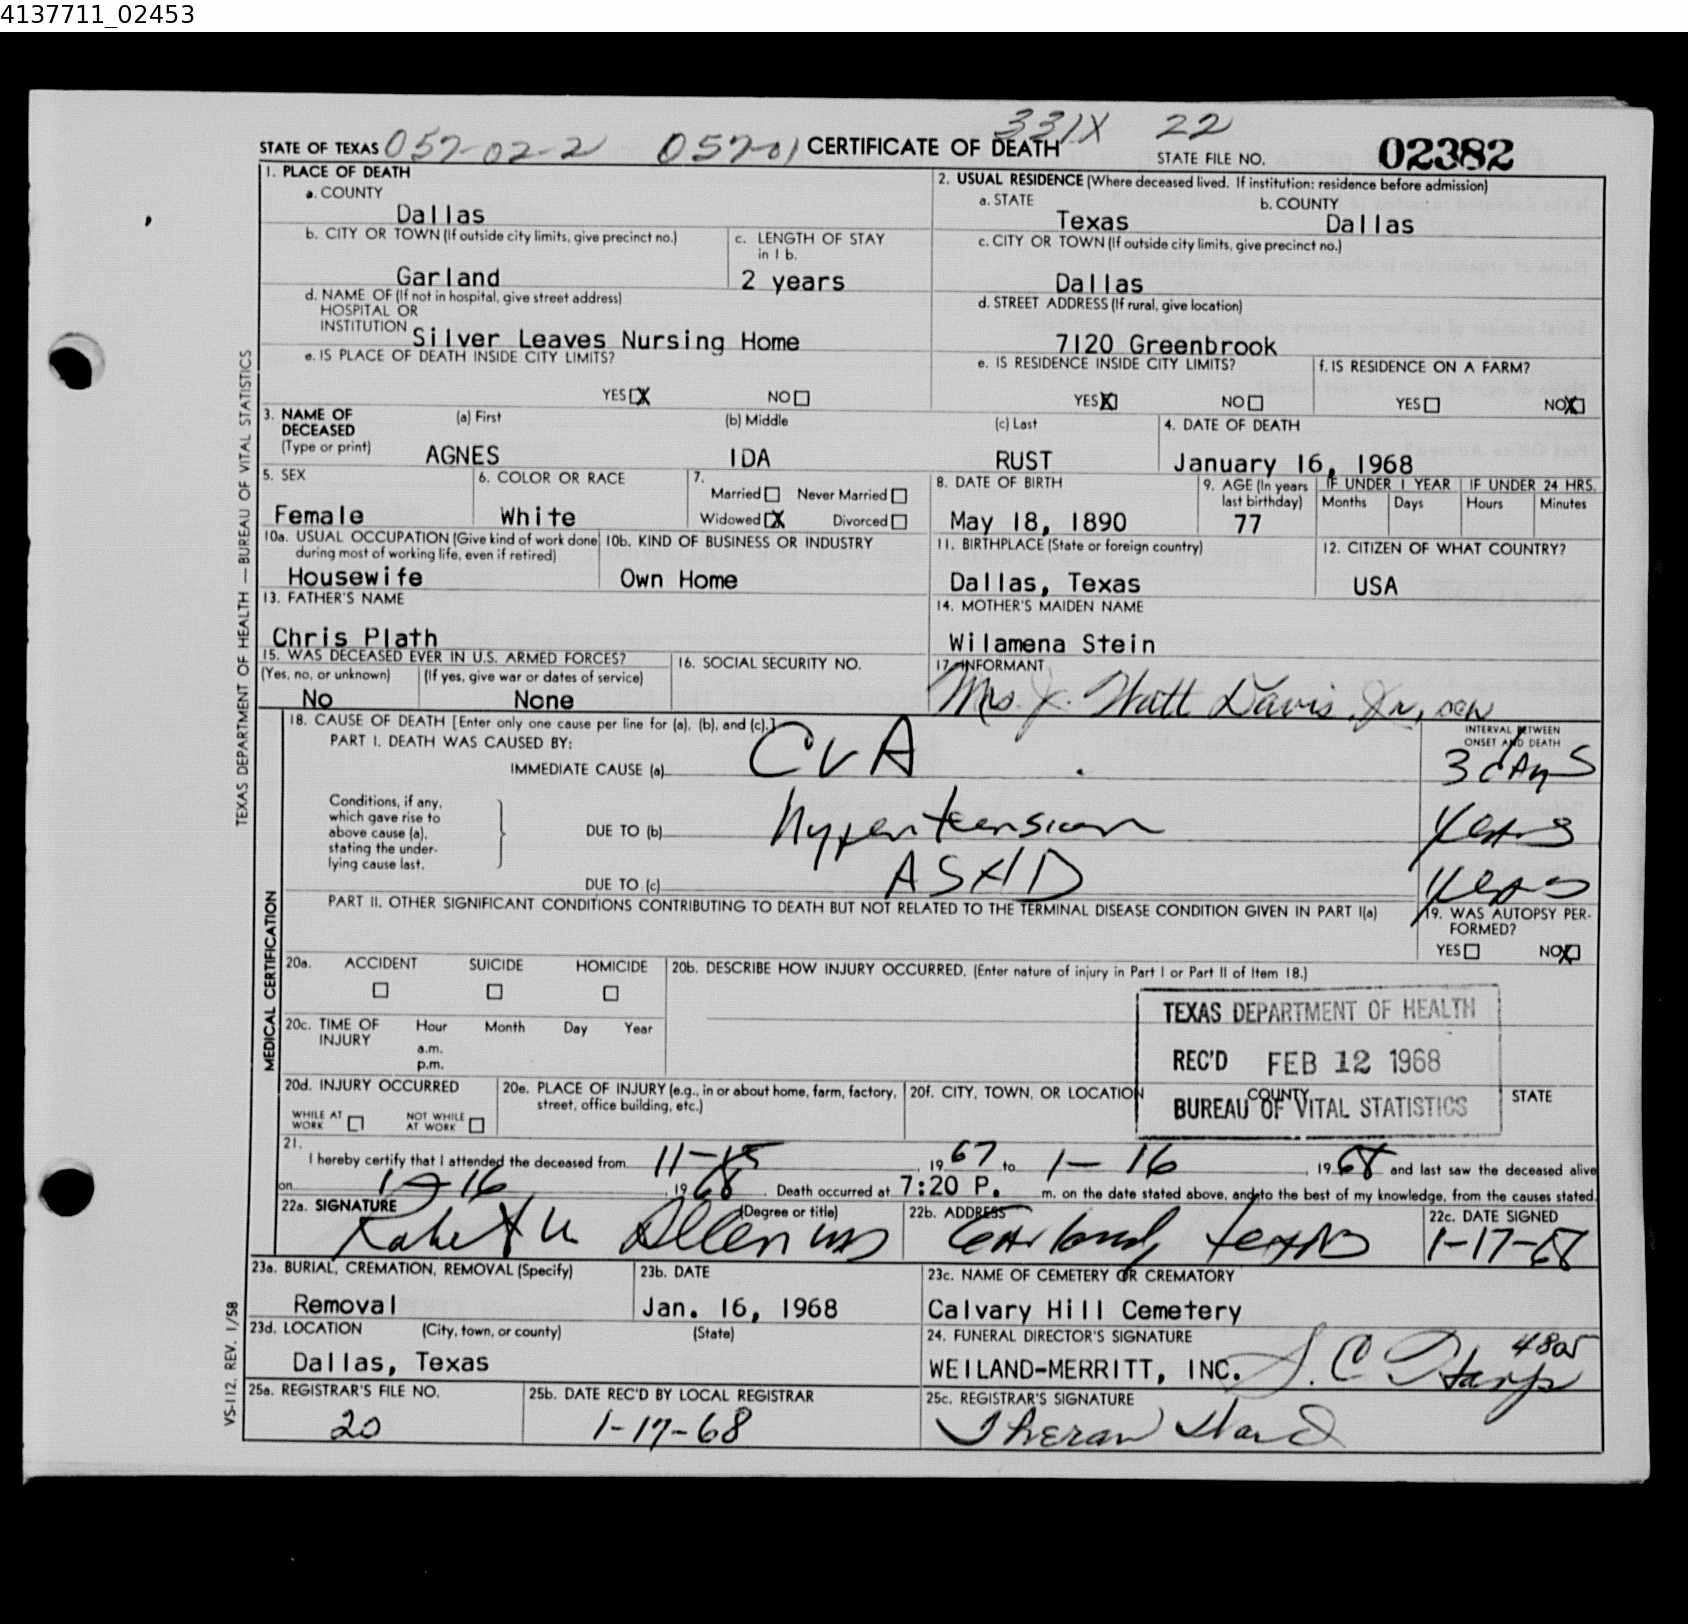 4137711_02453
STATE OF TEXAS 057-02-2 057-01 CERTIFICATE OF DEATH 331X 22 STATE FILE NO. 02382
1. PLACE OF DEATH
a. COUNTY
Dallas
2. USUAL RESIDENCE (Where deceased lived. If institution: residence before admission)
a. STATE b. COUNTY
Texas Dallas
b. CITY OR TOWN (If outside city limits, give precinct no.)
Garland
c. LENGTH OF STAY
in 1 b.
2 years
c. CITY OR TOWN (If outside city limits, give precinct no.)
Dallas
d. NAME OF (If not in hospital, give street address)
HOSPITAL OR
INSTITUTION Silver Leaves Nursing Home
d. STREET ADDRESS (If rural, give location)
7120 Greenbrook
e. IS PLACE OF DEATH INSIDE CITY LIMITS?
YES X NO
e. IS RESIDENCE INSIDE CITY LIMITS?
YES X NO
f. IS RESIDENCE ON A FARM?
YES NO X
3. NAME OF
DECEASED
(Type or print)
(a) First (b) Middle (c) Last
AGNES IDA RUST
4. DATE OF DEATH
January 16, 1968
5. SEX
Female
6. COLOR OR RACE
White
7.
Married Never Married
Widowed X Divorced
8. DATE OF BIRTH
May 18, 1890
9. AGE (In years
last birthday)
77
IF UNDER 1 YEAR
Months Days
IF UNDER 24 HRS.
Hours Minutes
10a. USUAL OCCUPATION (Give kind of work done
during most of working life, even if retired)
Housewife
10b. KIND OF BUSINESS OR INDUSTRY
Own Home
11. BIRTHPLACE (State or foreign country)
Dallas, Texas
12. CITIZEN OF WHAT COUNTRY?
USA
13. FATHER'S NAME
Chris Plath
14. MOTHER'S MAIDEN NAME
Wilamena Stein
15. WAS DECEASED EVER IN U.S. ARMED FORCES?
(Yes, no, or unknown) (If yes, give war or dates of service)
No None
16. SOCIAL SECURITY NO.
17. INFORMANT
Mrs. J. Watt Davis Jr.,
TEXAS DEPARTMENT OF HEALTH — BUREAU OF VITAL STATISTICS
MEDICAL CERTIFICATION
18. CAUSE OF DEATH [Enter only one cause per line for (a), (b), and (c).]
PART I. DEATH WAS CAUSED BY:
INTERVAL BETWEEN
ONSET AND DEATH
IMMEDIATE CAUSE (a) CVA 3 days
Conditions, if any,
which gave rise to
above cause (a),
stating the under-
lying cause last.
DUE TO (b) hypertension years
DUE TO (c) ASHD years
PART II. OTHER SIGNIFICANT CONDITIONS CONTRIBUTING TO DEATH BUT NOT RELATED TO THE TERMINAL DISEASE CONDITION GIVEN IN PART I(a)
19. WAS AUTOPSY PER-
FORMED?
YES NO X
20a. ACCIDENT SUICIDE HOMICIDE
20b. DESCRIBE HOW INJURY OCCURRED. (Enter nature of injury in Part I or Part II of Item 18.)
20c. TIME OF
INJURY
Hour Month Day Year
a.m.
p.m.
TEXAS DEPARTMENT OF HEALTH
REC'D FEB 12 1968
BUREAU OF VITAL STATISTICS
20d. INJURY OCCURRED
WHILE AT
WORK
NOT WHILE
AT WORK
20e. PLACE OF INJURY (e.g., in or about home, farm, factory,
street, office building, etc.)
20f. CITY, TOWN, OR LOCATION COUNTY STATE
21.
I hereby certify that I attended the deceased from 11-15, 1967 to 1-16, 1968 and last saw the deceased alive
on 1-16, 1968. Death occurred at 7:20 P. m. on the date stated above, and to the best of my knowledge, from the causes stated.
22a. SIGNATURE (Degree or title)
Allen MD
22b. ADDRESS
Garland, Texas
22c. DATE SIGNED
1-17-68
23a. BURIAL, CREMATION, REMOVAL (Specify)
Removal
23b. DATE
Jan. 16, 1968
23c. NAME OF CEMETERY OR CREMATORY
Calvary Hill Cemetery
23d. LOCATION (City, town, or county) (State)
Dallas, Texas
24. FUNERAL DIRECTOR'S SIGNATURE
WEILAND-MERRITT, INC.
25a. REGISTRAR'S FILE NO.
20
25b. DATE REC'D BY LOCAL REGISTRAR
1-17-68
25c. REGISTRAR'S SIGNATURE
VS-112, REV. 1/58